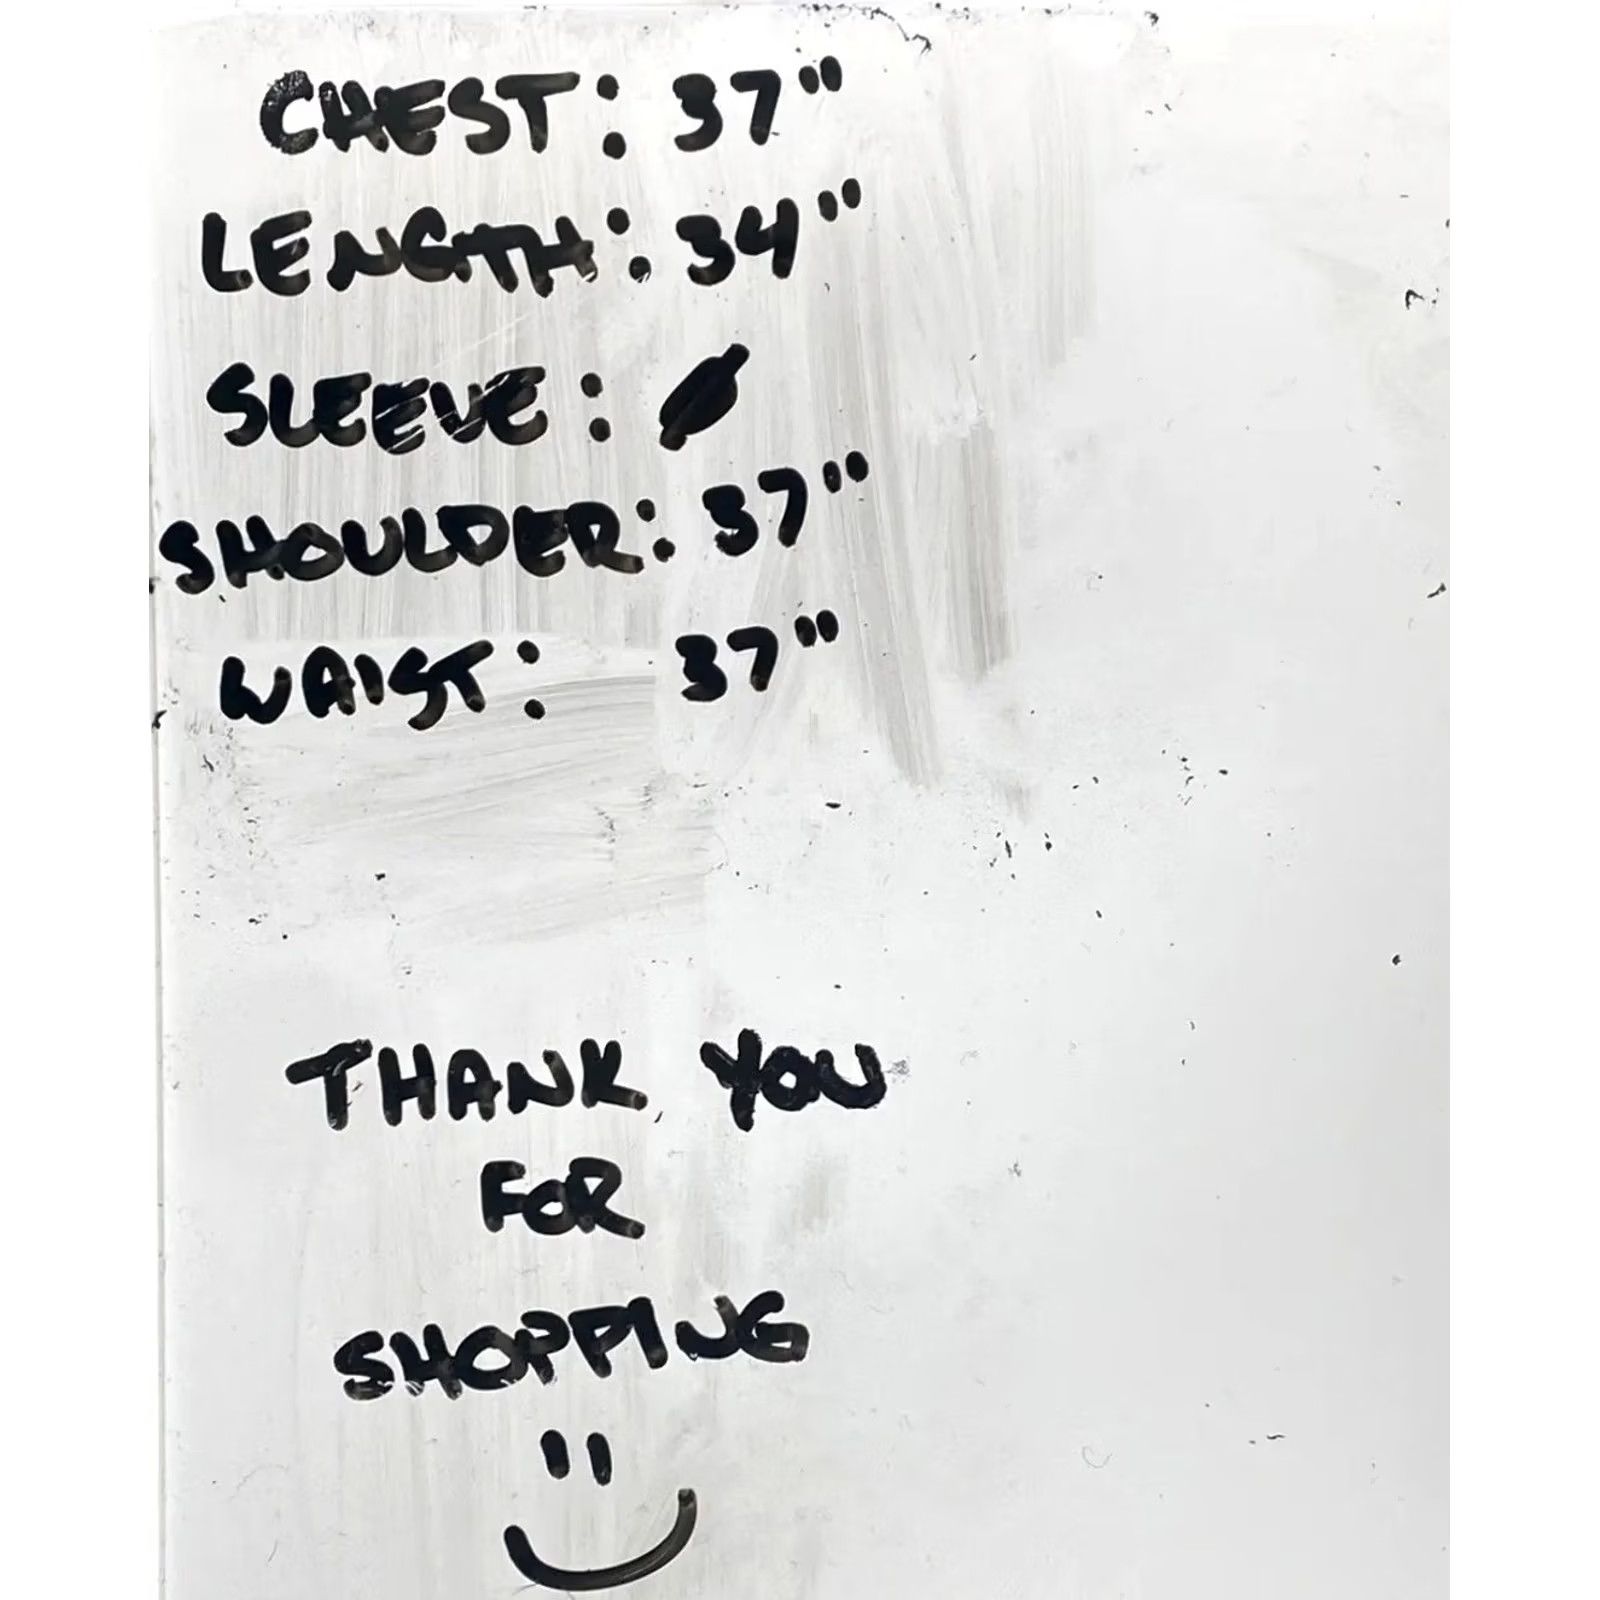 CHEST: 37"
LENGTH: 34"
SLEEVE: Ø
SHOULDER: 37"
WAIST: 37"
THANK YOU
FOR
SHOPPING